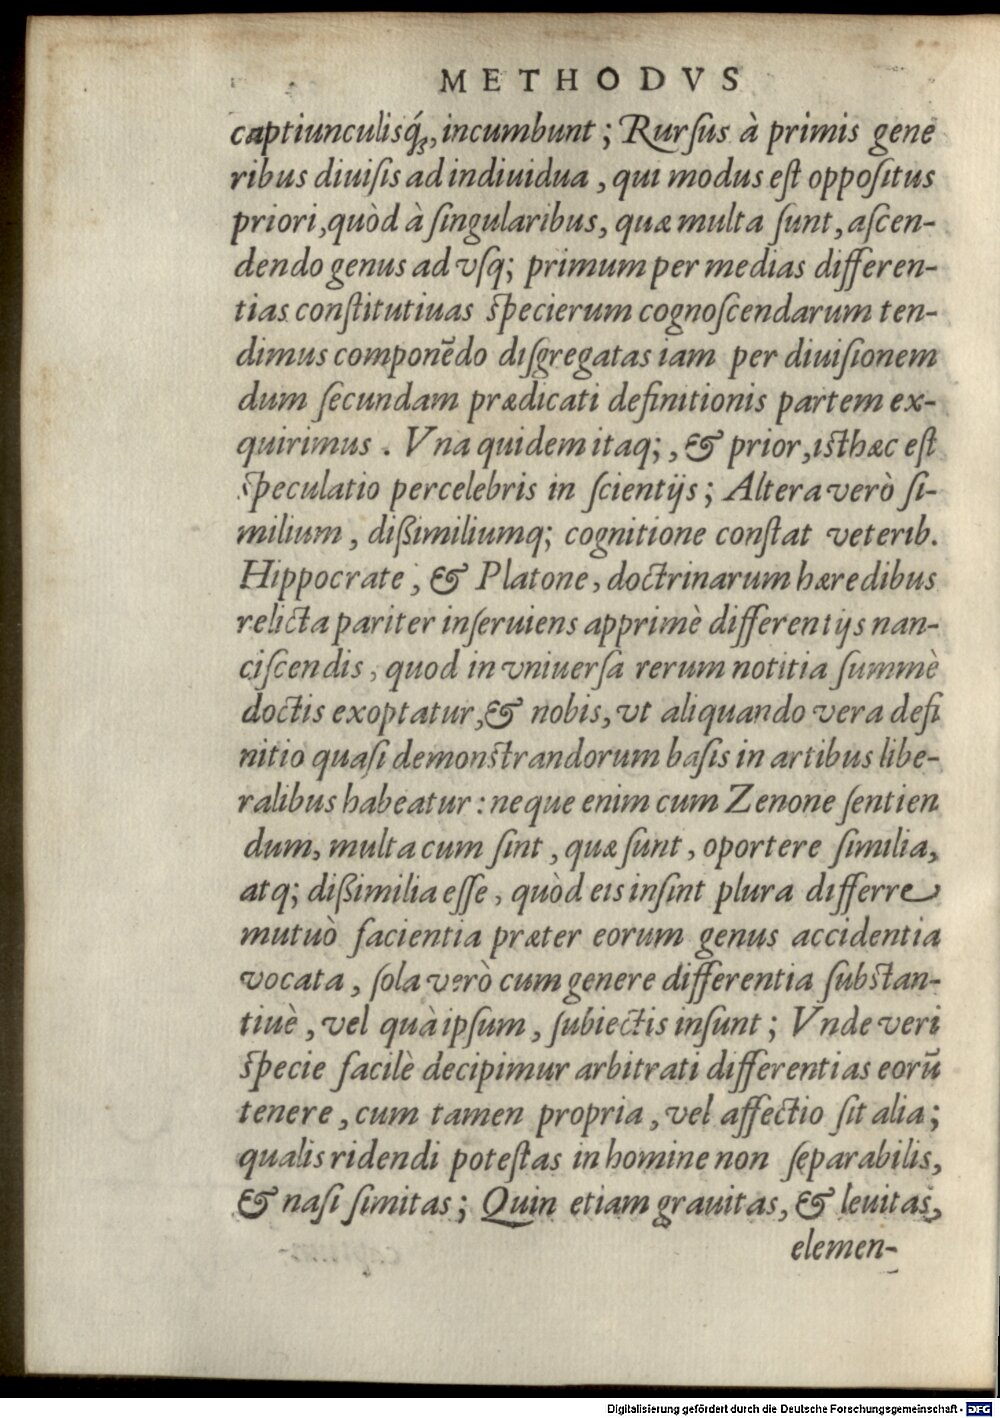 METHODVS
captiunculisq́;, incumbunt; Rurſus à primis gene
ribus diuiſis ad indiuidua, qui modus eſt oppoſitus
priori, quòd à ſingularibus, quæ multa ſunt, aſcen-
dendo genus ad vſq; primum per medias differen-
tias conſtitutiuas ſpecierum cognoſcendarum ten-
dimus componēdo diſgregatas iam per diuiſionem
dum ſecundam prædicati definitionis partem ex-
quirimus. Vna quidem itaq;, & prior, iſthæc eſt
ſpeculatio percelebris in ſcientijs; Altera verò ſi-
milium, dißimiliumq; cognitione conſtat veterib.
Hippocrate, & Platone, doctrinarum hæredibus
relicta pariter inſeruiens apprimè differentijs nan-
ciſcendis, quod in vniuerſa rerum notitia ſummè
doctis exoptatur, & nobis, vt aliquando vera defi
nitio quaſi demonſtrandorum baſis in artibus libe-
ralibus habeatur: neque enim cum Zenone ſentien
dum, multa cum ſint, quæ ſunt, oportere ſimilia,
atq; dißimilia eſſe, quòd eis inſint plura differre
mutuò facientia præter eorum genus accidentia
vocata, ſola verò cum genere differentia ſubſtan-
tiuè, vel quà ipſum, ſubiectis inſunt; Vnde veri
ſpecie facilè decipimur arbitrati differentias eorū
tenere, cum tamen propria, vel affectio ſit alia;
qualis ridendi poteſtas in homine non ſeparabilis,
& naſi ſimitas; Quin etiam grauitas, & leuitas,
elemen-
Digitalisierung gefördert durch die Deutsche Forschungsgemeinschaft - DFG